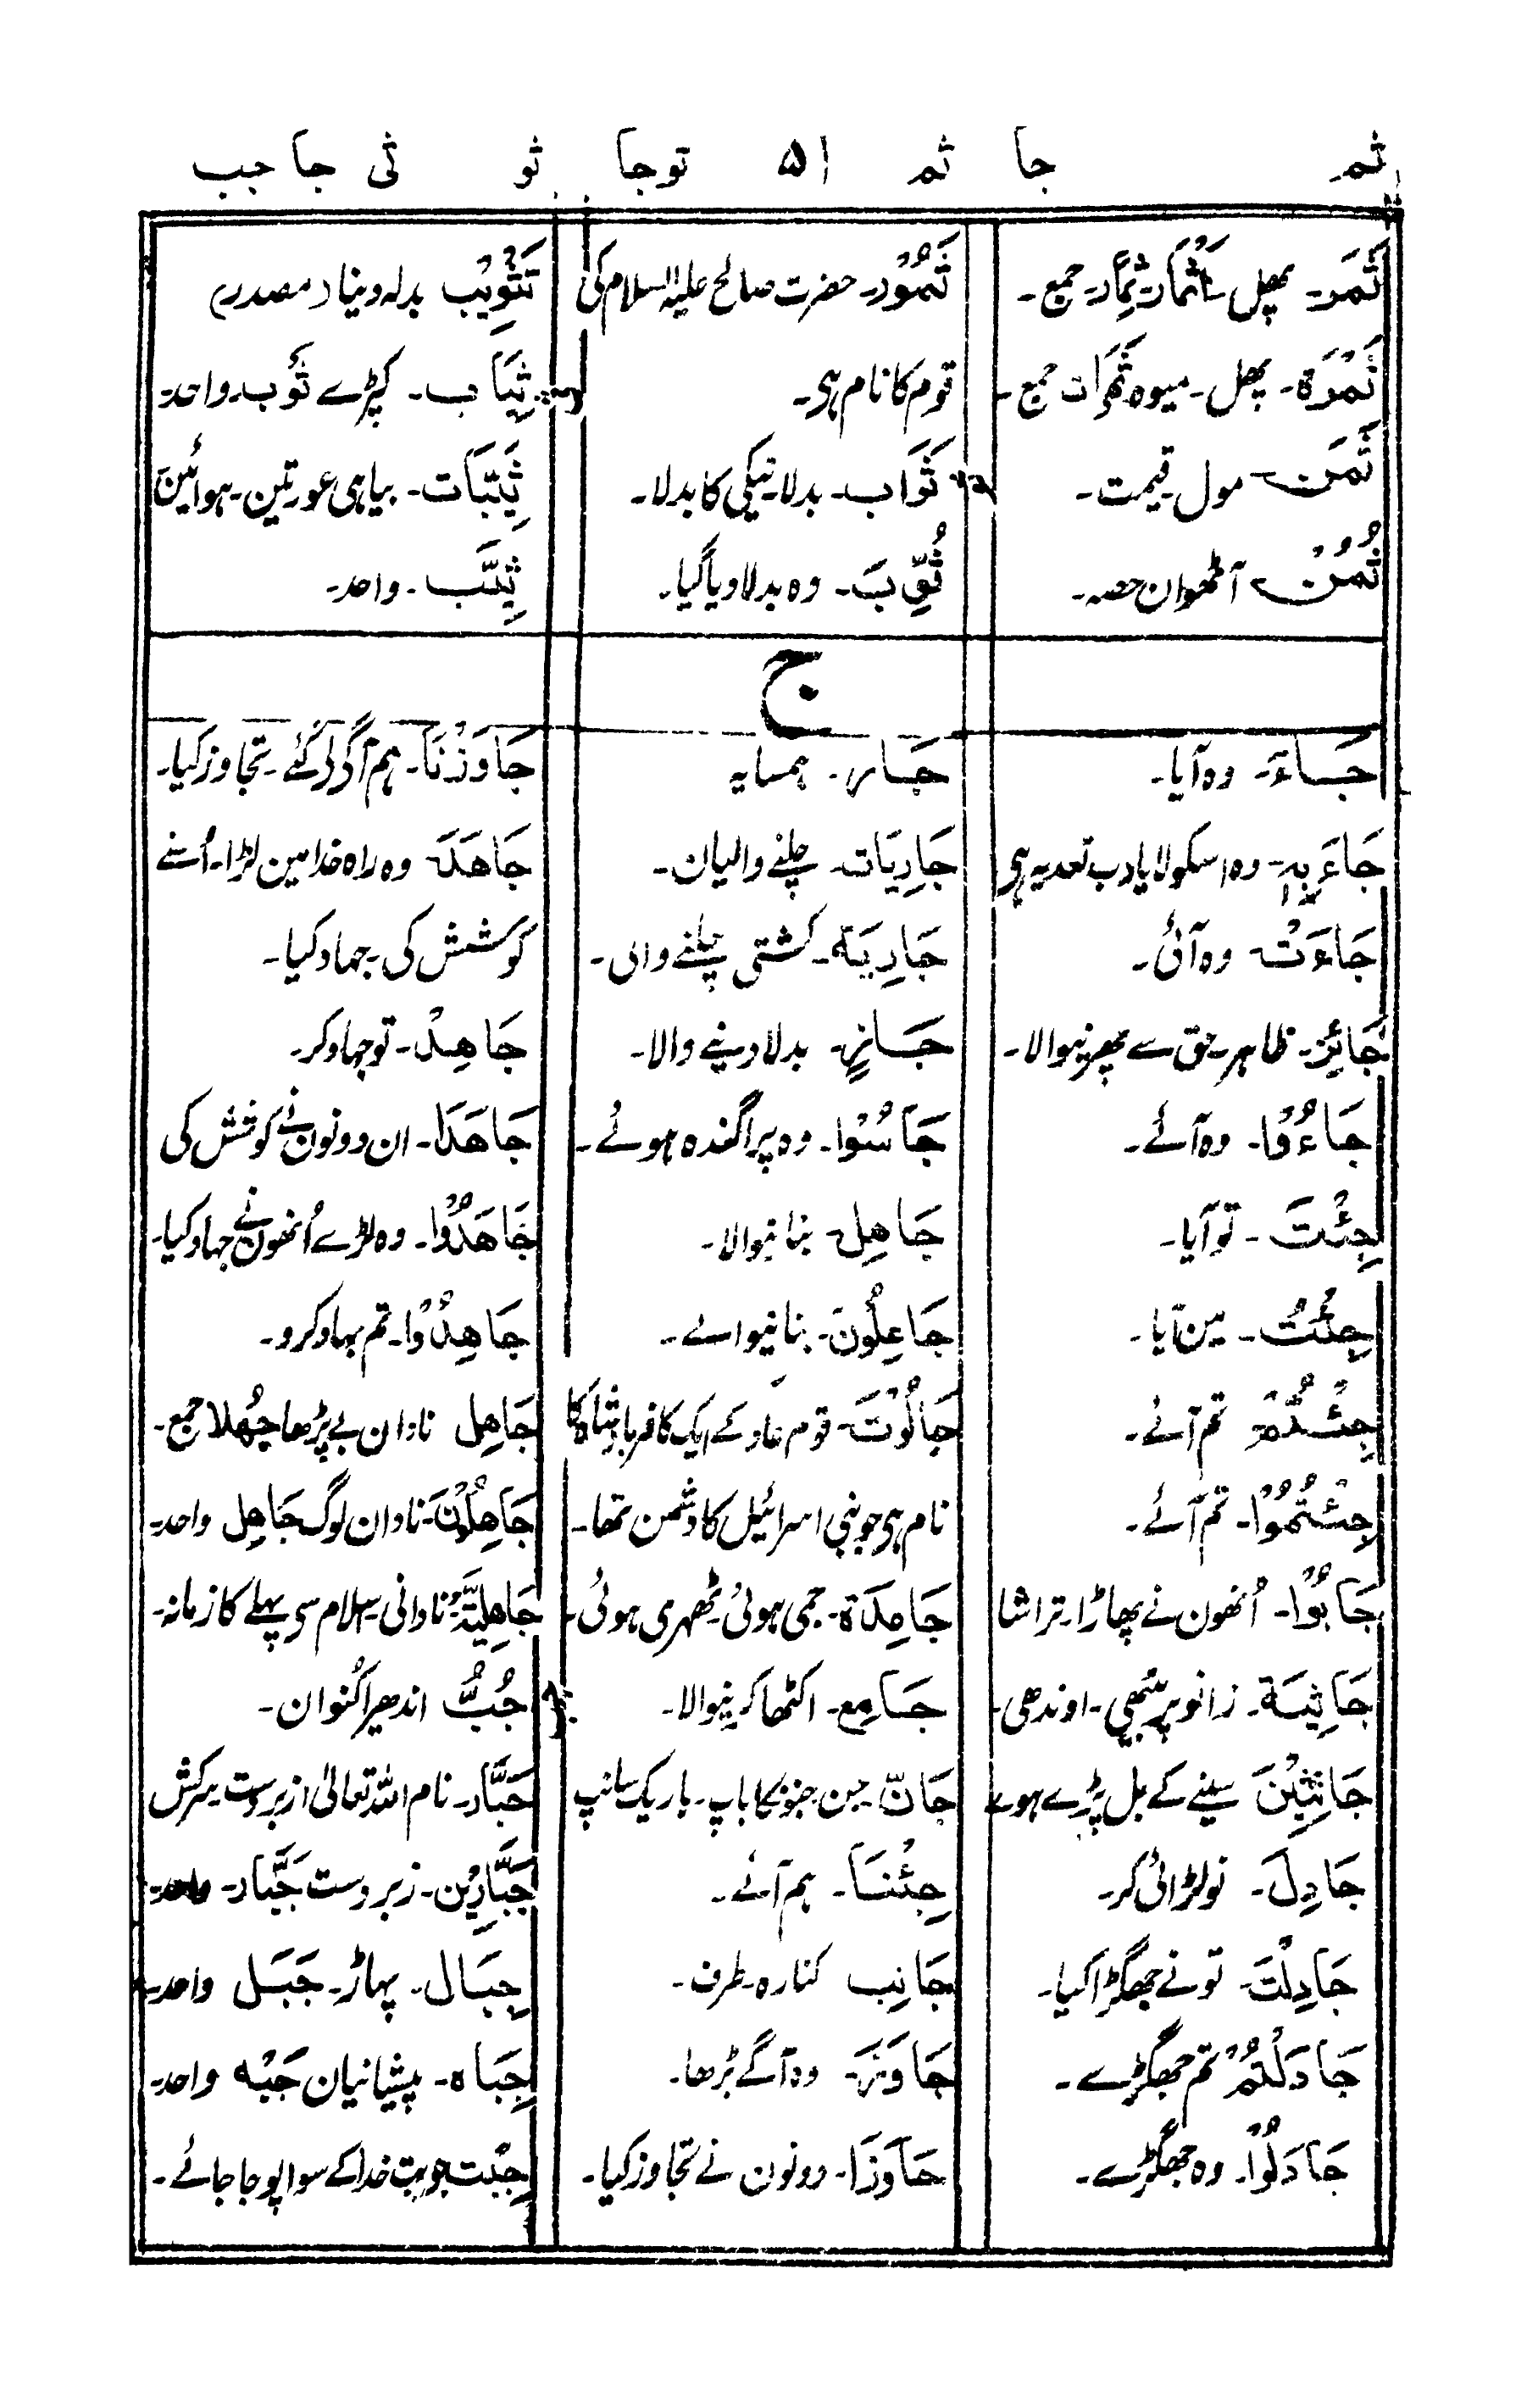 ثمر جا ثمر ۵۱ ثوجا ثو ثی جا جب
ثَمَر۔ پھل۔ اَثْمَار۔ ثِمَار۔ جمع۔
ثَمَرَة۔ پھل۔ میوہ ثَمَرَات جمع۔
ثَمَن مول۔ قیمت۔
ثُمُن آٹھوان حصہ۔
ثَمُوْد۔ حضرت صالح علیہ السلام کی
قوم کا نام ہی۔
ثَوَاب۔ بدلا۔ نیکی کا بدلا۔
ثُوِّبَ۔ وہ بدلا دیا گیا۔
تَثْوِیْب بدلہ دینا د مصدر م
ثِیَاب۔ کپڑے ثَوب۔ واحد۔
ثَیِّبَات۔ بیاہی عورتین۔ ہوائین
ثَیِّب۔ واحد۔
ج
جَاءَ۔ وہ آیا۔
جَاءَ بِهٖ۔ وہ اسکو لایا دب تعدیہ ہی
جَاءَتْ وہ آئی۔
جَائِز۔ ظاہر۔ حق سے پھرنیوالا۔
جَاءُوْا۔ وہ آئے۔
جِئْتَ۔ تو آیا۔
جِئْتُ۔ مین آیا۔
جِئْتُمْ تم آئے۔
جِئْتُمُوْا۔ تم آئے۔
جَابُوْا۔ اُنھون نے پھاڑا۔ تراشا
جَاثِیَة۔ زانو پر بیٹھی۔ اوندھی۔
جَاثِیْنَ سینے کے بل پڑے ہوے
جَادِلَ۔ تو لڑائی کر۔
جَادِلْتَ۔ تو نے جھگڑا کیا۔
جَادَلْتُمْ تم جھگڑے۔
جَادَلُوْا۔ وہ جھگڑے۔
جَار۔ ہمسایہ
جَارِیَات۔ چلنے والیان۔
جَارِیَة۔ کشتی چلنے والی۔
جَازٍ۔ بدلا دینے والا۔
جَاسُوْا۔ وہ پراگندہ ہوئے۔
جَاهِل۔ بنانیوالا۔
جَاعِلُوْنَ۔ بنانیوالے۔
جَالُوْتَ۔ قوم عاد کے ایک کافر بادشاہ کا
نام ہی جو بنی اسرائیل کا دشمن تھا۔
جَامِدَة۔ جمی ہوئی۔ ٹھہری ہوئی۔
جَامِع۔ اکٹھا کرنیوالا۔
جَانّ۔ جن۔ جنون کا باپ۔ باریک سانپ
جِئْنَا۔ ہم آئے۔
جَانِب کنارہ۔ طرف۔
جَاوَزَ۔ وہ آگے بڑھا۔
جَاوَزَا۔ دونون نے تجاوز کیا۔
جَاوَزْنَا۔ ہم آگے لی گئے۔ تجاوز کیا۔
جَاهَدَ وہ راہ خدا مین لڑا۔ اُسنے
کوشش کی۔ جہاد کیا۔
جَاهِدْ۔ تو جہاد کر۔
جَاهَدَا۔ ان دونون نے کوشش کی
جَاهَدُوْا۔ وہ لڑے اُنھون نے جہاد کیا۔
جَاهِدُوْا۔ تم جہاد کرو۔
جَاهِل نادان بے پڑھا جُهَلا جمع۔
جَاهِلُوْنَ۔ نادان لوگ جَاهِل واحد۔
جَاهِلِیَّة۔ نادانی۔ اسلام سی پہلے کا زمانہ۔
جُبّ اندھیرا کنوان۔
جَبَّار۔ نام اللہ تعالی ازبردست سرکش
جَبَّارِیْن۔ زبردست جَبَّار۔ واحد۔
جِبَال۔ پہاڑ۔ جَبَل واحد۔
جِبَاه۔ پیشانیان جَبْہ واحد۔
جِبْت جو بت خدا کے سوا پوجا جائے۔